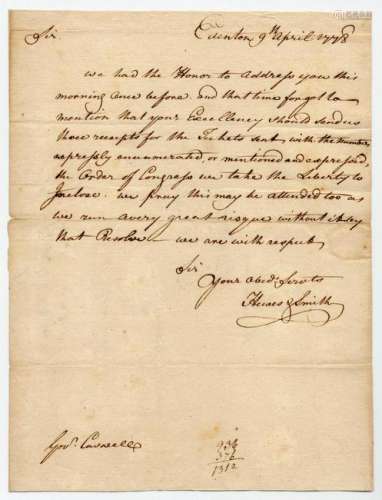 Sir
Edenton 9th April 1778
we had the Honor to Address you this
morning once before and that time forgot to
mention that your Excellency should send us
those receipts for the Tickets sent, with the numbers
expressly enumerated, or mentioned and expressed,
the Order of Congress we take the Liberty to
Inclose. we pray this may be attended too as
we run a very great risque without it by
that Resolve we are with respect
Sir
Your obedt. Servts
Hewes & Smith
Govr. Caswell
936
376
1312